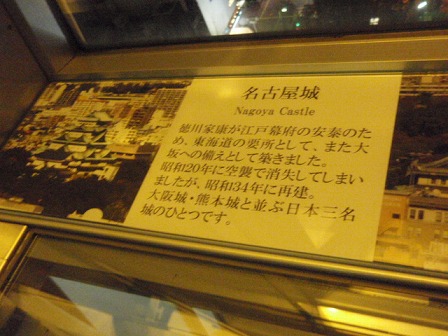 名古屋城
Nagoya Castle
徳川家康が江戸幕府の安泰のた
め、東海道の要所として、また大
坂への備えとして築きました。
昭和20年に空襲で消失してしまい
ましたが、昭和34年に再建。
大阪城・熊本城と並ぶ日本三名
城のひとつです。